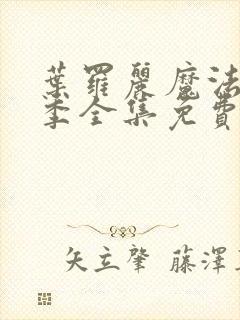 葉羅麗魔法
季全集免費
矢立肇 藤澤